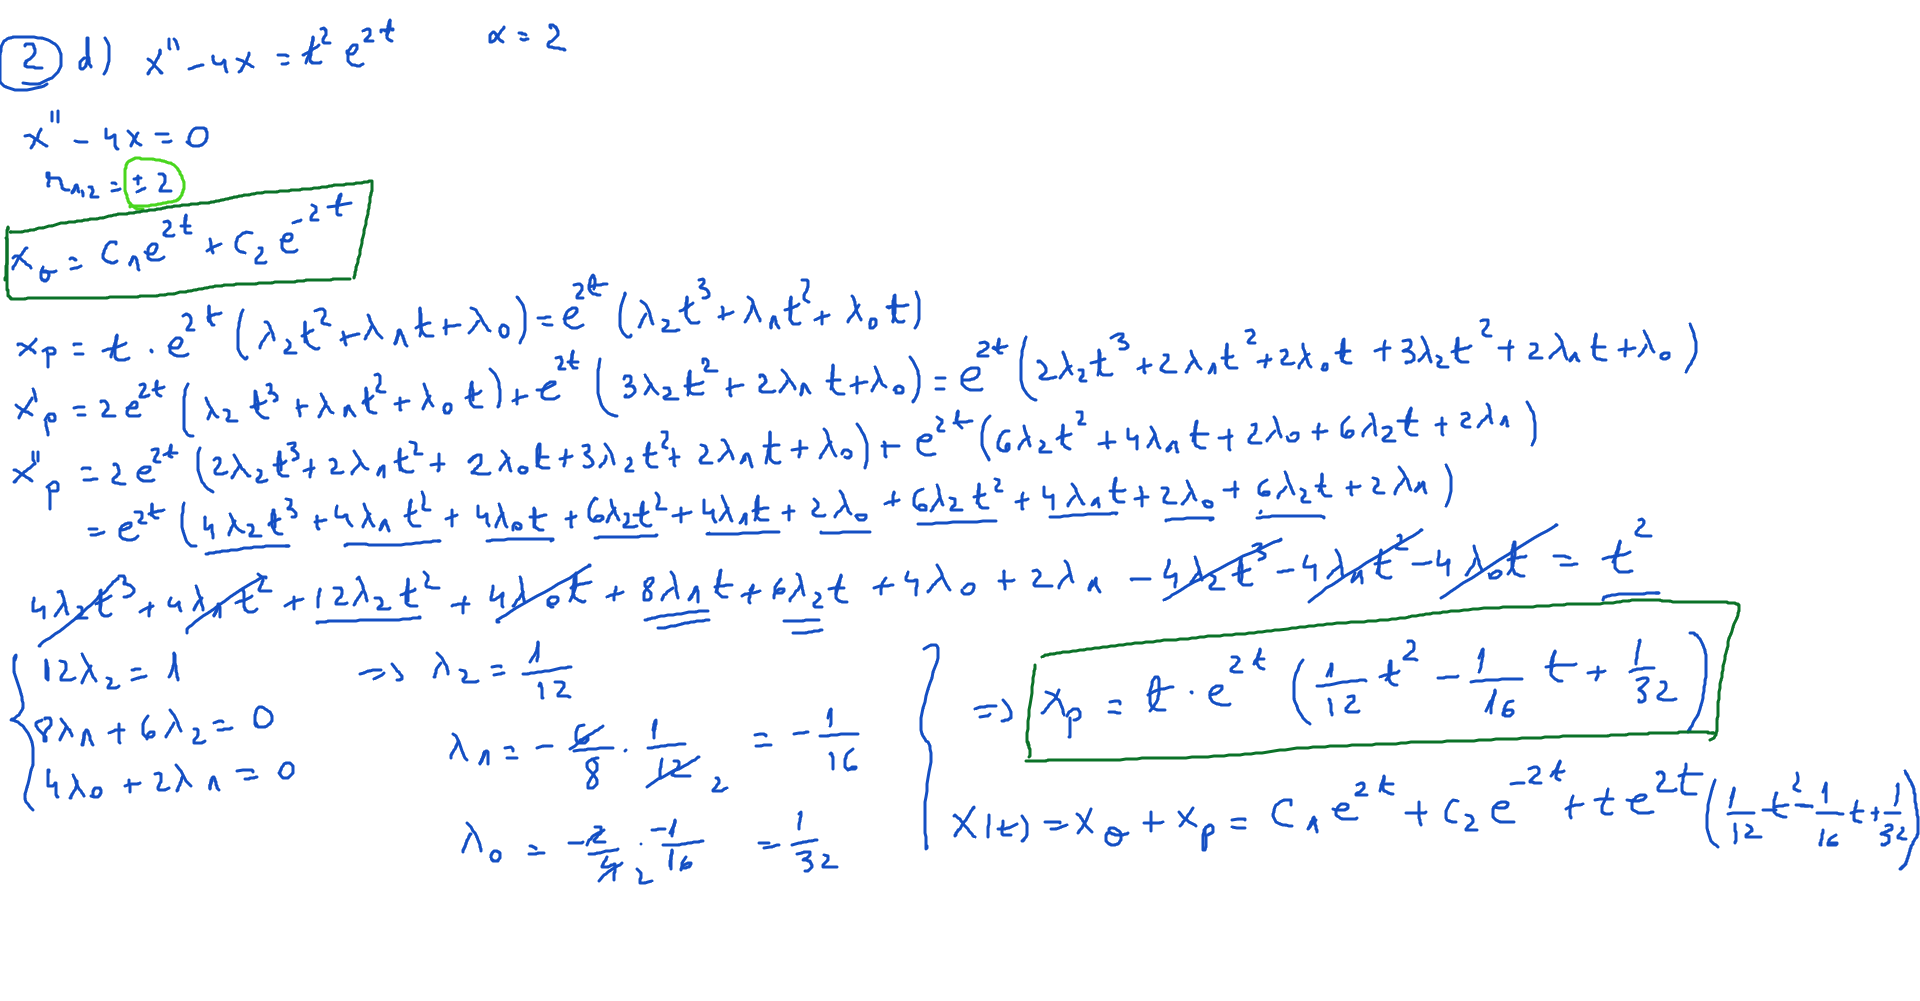 ② d) x'' - 4x = t² e^{2t}    α = 2
x'' - 4x = 0
r_{1,2} = ± 2
x_0 = C_1 e^{2t} + C_2 e^{-2t}
x_p = t · e^{2t} (λ_2 t² + λ_1 t + λ_0) = e^{2t} (λ_2 t³ + λ_1 t² + λ_0 t)
x'_p = 2e^{2t} (λ_2 t³ + λ_1 t² + λ_0 t) + e^{2t} (3λ_2 t² + 2λ_1 t + λ_0) = e^{2t} (2λ_2 t³ + 2λ_1 t² + 2λ_0 t + 3λ_2 t² + 2λ_1 t + λ_0)
x''_p = 2e^{2t} (2λ_2 t³ + 2λ_1 t² + 2λ_0 t + 3λ_2 t² + 2λ_1 t + λ_0) + e^{2t} (6λ_2 t² + 4λ_1 t + 2λ_0 + 6λ_2 t + 2λ_1)
= e^{2t} (4λ_2 t³ + 4λ_1 t² + 4λ_0 t + 6λ_2 t² + 4λ_1 t + 2λ_0 + 6λ_2 t² + 4λ_1 t + 2λ_0 + 6λ_2 t + 2λ_1)
4λ_2 t³ + 4λ_1 t² + 12λ_2 t² + 4λ_0 t + 8λ_1 t + 6λ_2 t + 4λ_0 + 2λ_1 - 4λ_2 t³ - 4λ_1 t² - 4λ_0 t = t²
12λ_2 = 1 => λ_2 = 1/12
8λ_1 + 6λ_2 = 0
4λ_0 + 2λ_1 = 0
λ_1 = - 6/8 · 1/12 2 = - 1/16
λ_0 = -2/4 2 · -1/16 = 1/32
=> x_p = t · e^{2t} (1/12 t² - 1/16 t + 1/32)
x(t) = x_0 + x_p = C_1 e^{2t} + C_2 e^{-2t} + t e^{2t} (1/12 t² - 1/16 t + 1/32)